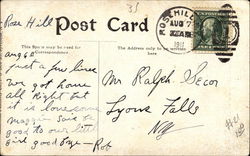 Rose Hill
Post Card
ROSE HILL
AUG 7
This Space may be used for
Correspondence
The Address only to be
written here
Aug 6
just a few lines
we got home
all right but
it is lonesome
maggie
good to our little
girl good bye - Rob
Mr Ralph Secor
Lyons Falls
NY